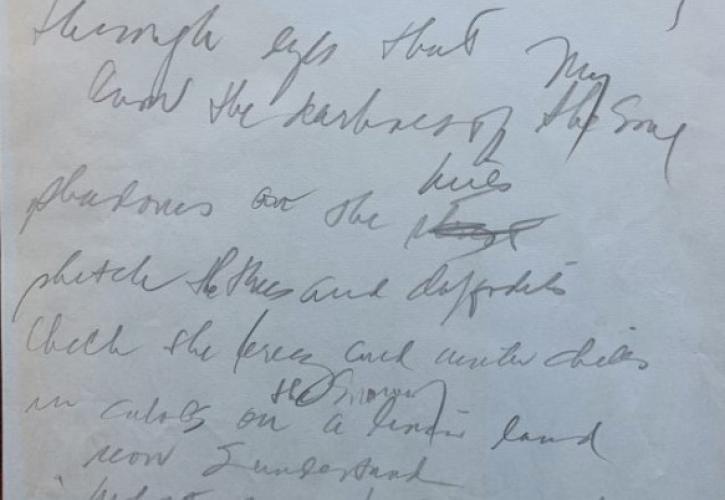 through eyes that
know the darkness of my
the soul
shadows on the hills
sketch the trees and daffodils
Catch the breeze and winter chills
in colors on a the snowy linen land
now I understand